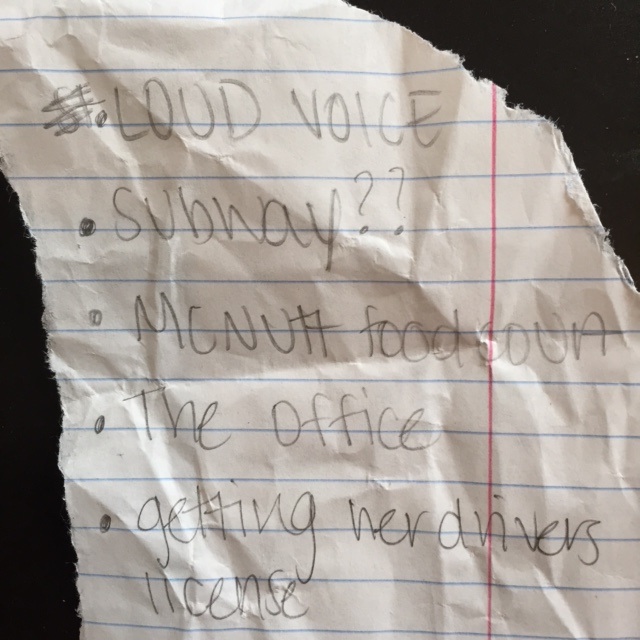 • LOUD VOICE
• Subway??
• MCNUtt food court
• The office
• getting her drivers
license